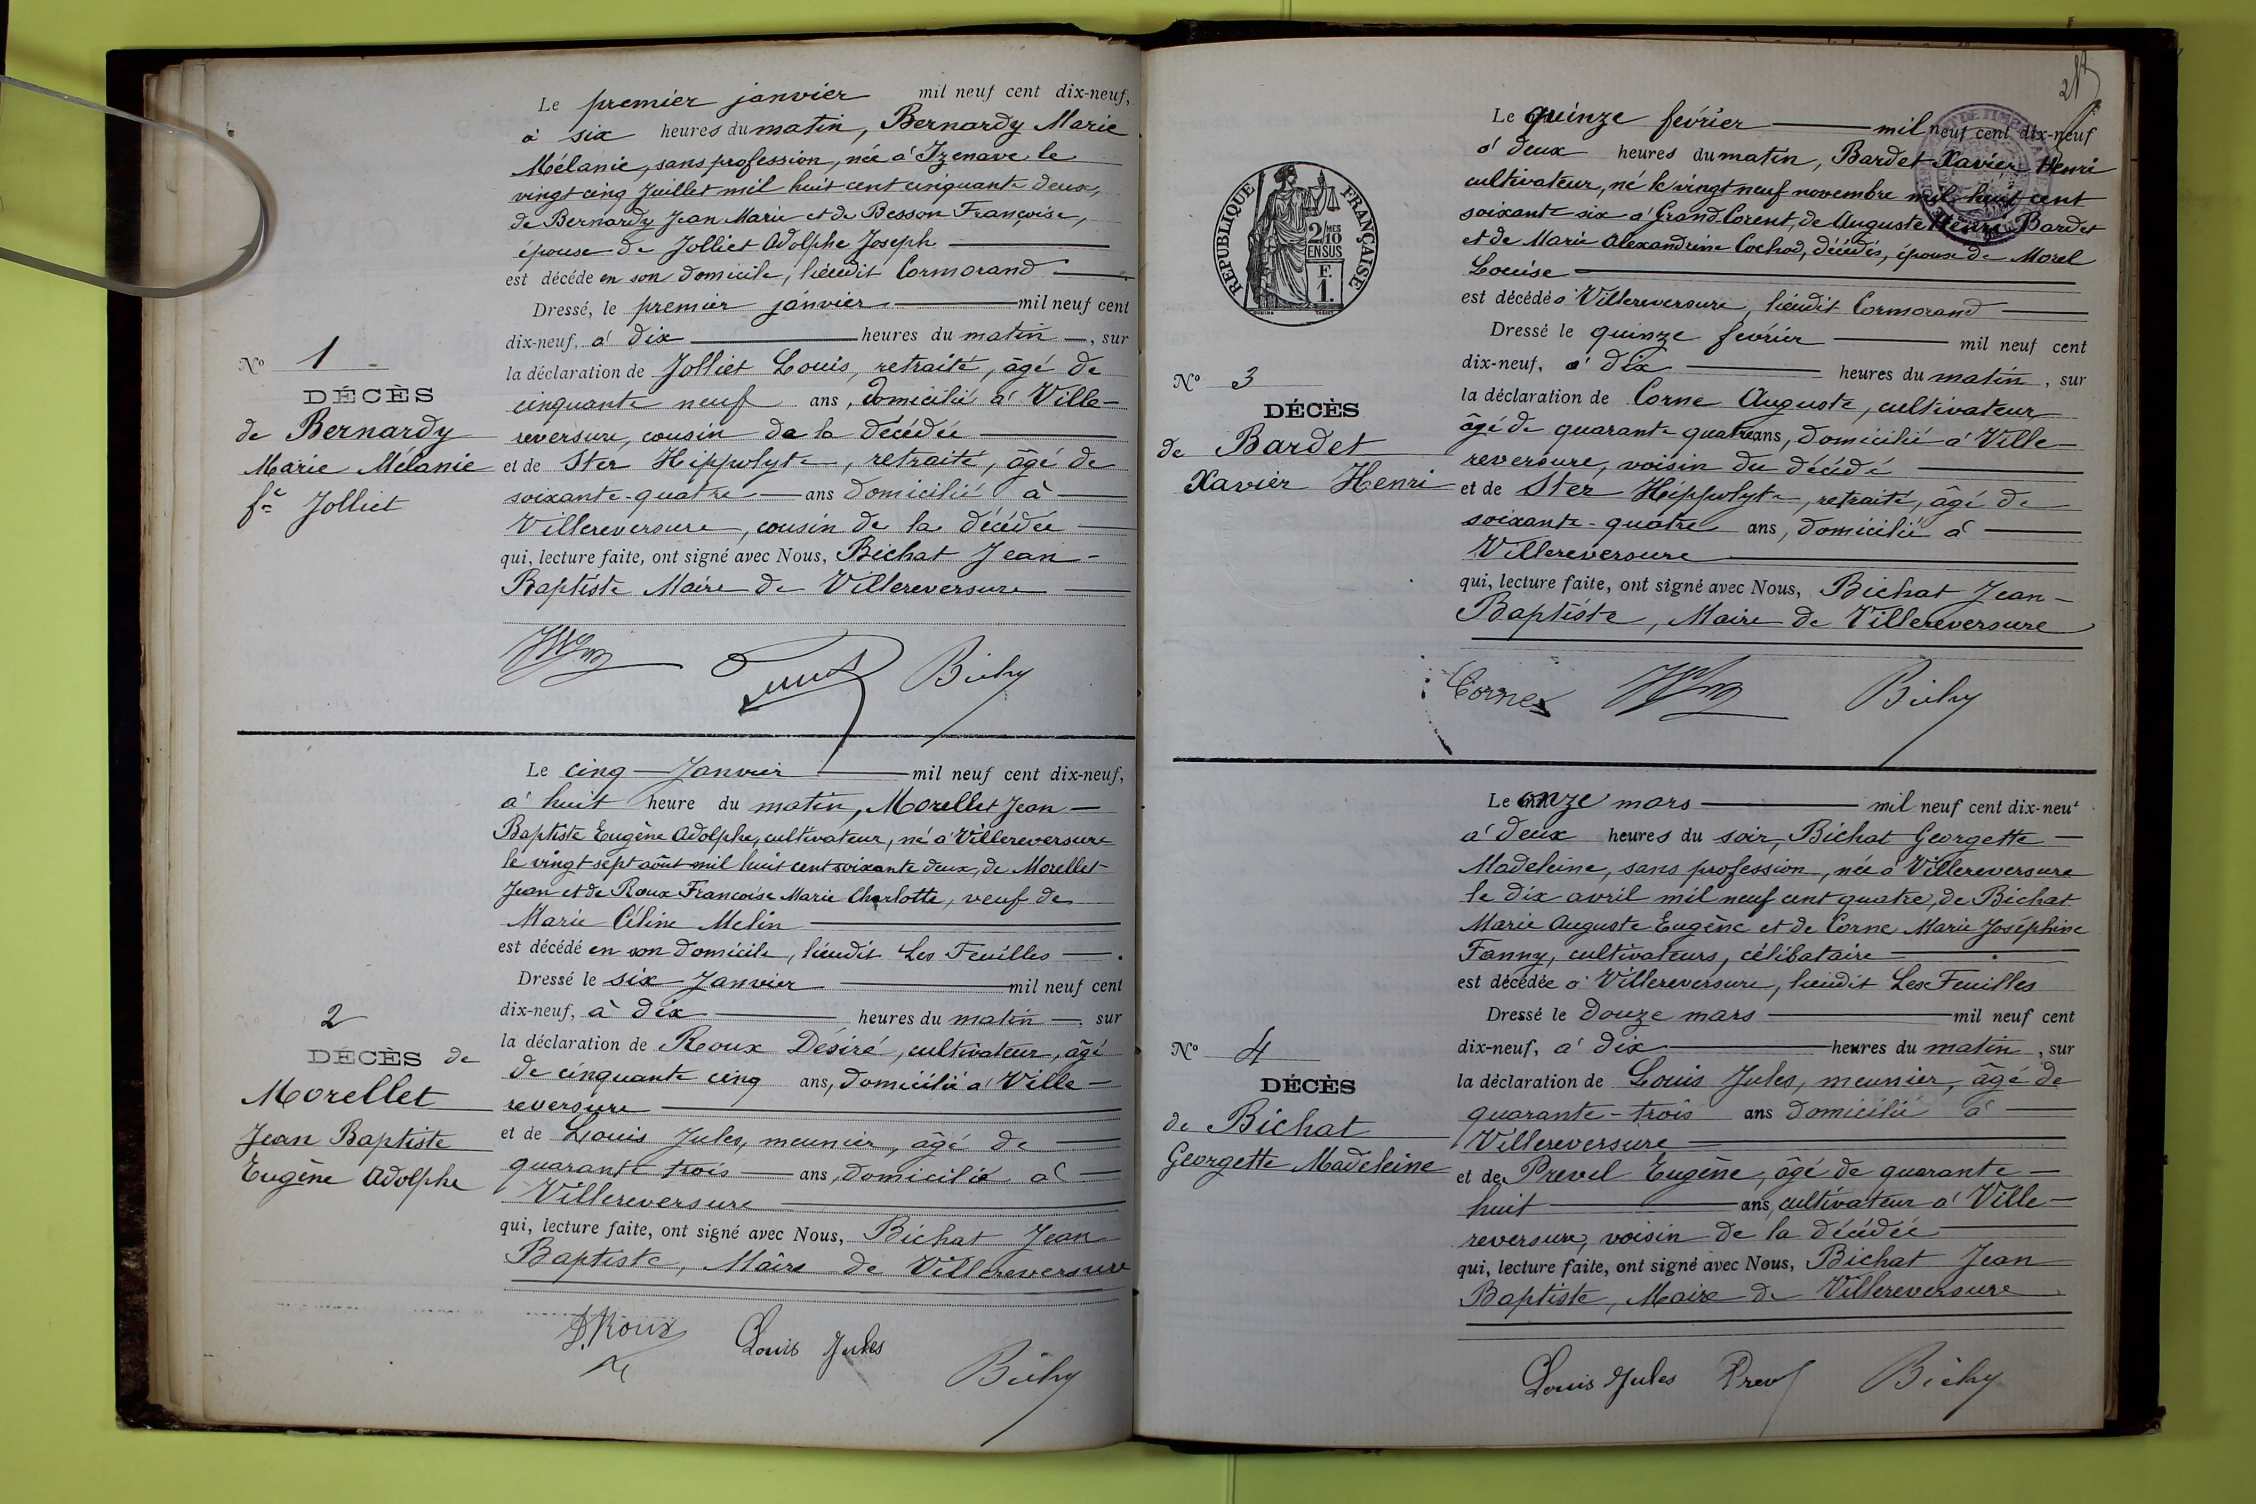 Le premier janvier mil neuf cent dix-neuf,
à six heures du matin, Bernardy Marie
Mélanie, sans profession, née à Izenave le
vingt cinq Juillet mil huit cent cinquante deux,
de Bernardy Jean Marie et de Besson Françoise,
épouse de Jolliet Adolphe Joseph
est décédé en son domicile, lieudit Cormorand
Dressé, le premier janvier mil neuf cent
dix-neuf, à dix heures du matin, sur
la déclaration de Jolliet Louis, retraité, âgé de
cinquante neuf ans, domicilié à Ville-
reversure, cousin de la décédée
et de Ster Hippolyte, retraité, âgé de
soixante-quatre ans domicilié à
Villereversure, cousin de la décédée
qui, lecture faite, ont signé avec Nous, Bichat Jean-
Baptiste Maire de Villereversure
Nº 1
DÉCÈS
de Bernardy
Marie Mélanie
fe Jolliet
Bichat
Le cinq Janvier mil neuf cent dix-neuf,
à huit heure du matin, Morellet Jean
Baptiste Eugène Adolphe, cultivateur, né à Villereversure
le vingt sept août mil huit cent soixante deux, de Morellet
Jean et de Roux Françoise Marie Charlotte, veuf de
Marie Céline Melin
est décédé en son domicile, lieudit Les Feuilles
Dressé le six Janvier mil neuf cent
dix-neuf, à dix heures du matin, sur
la déclaration de Roux Désiré, cultivateur, âgé
de cinquante cinq ans, domicilié à Ville-
reversure
et de Louis Jules, meunier, âgé de
quarante trois ans, domicilié à
Villereversure
qui, lecture faite, ont signé avec Nous, Bichat Jean
Baptiste, Maire de Villereversure
2
DÉCÈS de
Morellet
Jean Baptiste
Eugène Adolphe
D. Roux Louis Jules
Bichat
RÉPUBLIQUE FRANÇAISE
2/10
MES
EN SUS
F.
1.
Le quinze février mil neuf cent dix-neuf
à deux heures du matin, Bardet Xavier Henri
cultivateur, né le vingt neuf novembre mil huit cent
soixante six à Grand-Corent, de Auguste Henri Bardet
et de Marie Alexandrine Cochod, décédés, époux de Morel
Louise
est décédé à Villereversure, lieudit Cormorand
Dressé le quinze février mil neuf cent
dix-neuf, à dix heures du matin, sur
la déclaration de Corne Auguste, cultivateur
âgé de quarante quatre ans, domicilié à Ville-
reversure, voisin du décédé
et de Ster Hippolyte, retraité, âgé de
soixante-quatre ans, domicilié à
Villereversure
qui, lecture faite, ont signé avec Nous, Bichat Jean-
Baptiste, Maire de Villereversure
Nº 3
DÉCÈS
de Bardet
Xavier Henri
Corne Bichat
Le onze mars mil neuf cent dix-neuf
à deux heures du soir, Bichat Georgette
Madeleine, sans profession, née à Villereversure
le dix avril mil neuf cent quatre, de Bichat
Marie Auguste Eugène et de Corne Marie Joséphine
Fanny, cultivateurs, célibataire
est décédée à Villereversure, lieudit Les Feuilles
Dressé le douze mars mil neuf cent
dix-neuf, à dix heures du matin, sur
la déclaration de Louis Jules, meunier, âgé de
quarante-trois ans domicilié à
Villereversure
et de Prevel Eugène, âgé de quarante
huit ans, cultivateur à Ville-
reversure, voisin de la décédée
qui, lecture faite, ont signé avec Nous, Bichat Jean
Baptiste, Maire de Villereversure
Nº 4
DÉCÈS
de Bichat
Georgette Madeleine
Louis Jules Prevel Bichat